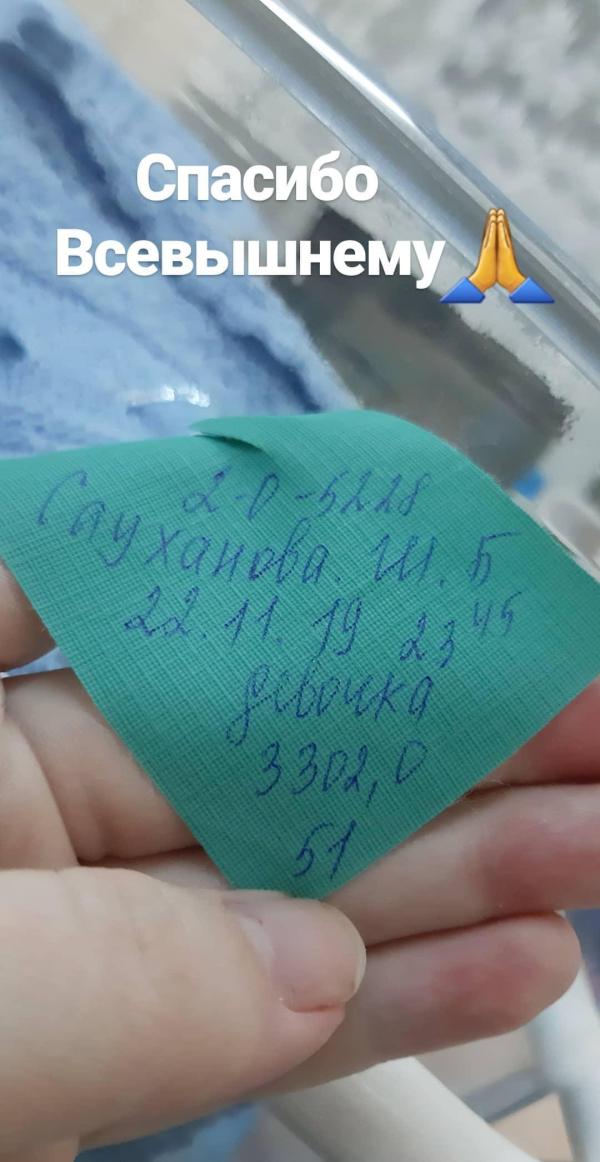 Спасибо
Всевышнему🙏
2-0-5228
Сауханова. Ш. Б
22.11.19 23 45
девочка
3302,0
51